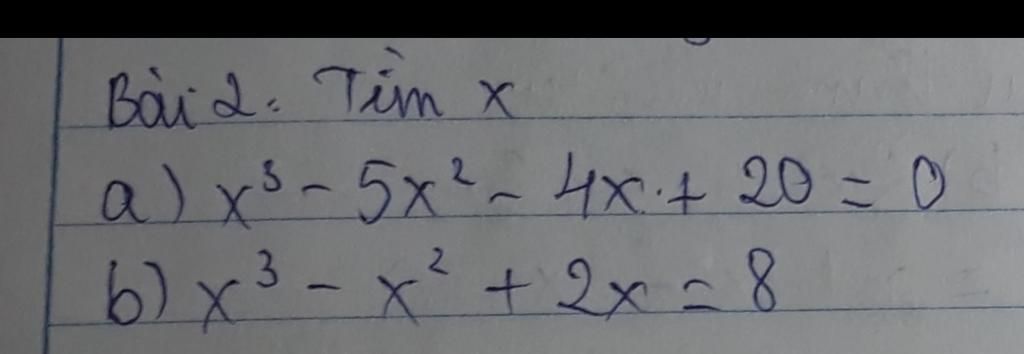 Bài 2: Tìm x
a) x³ - 5x² - 4x + 20 = 0
b) x³ - x² + 2x = 8